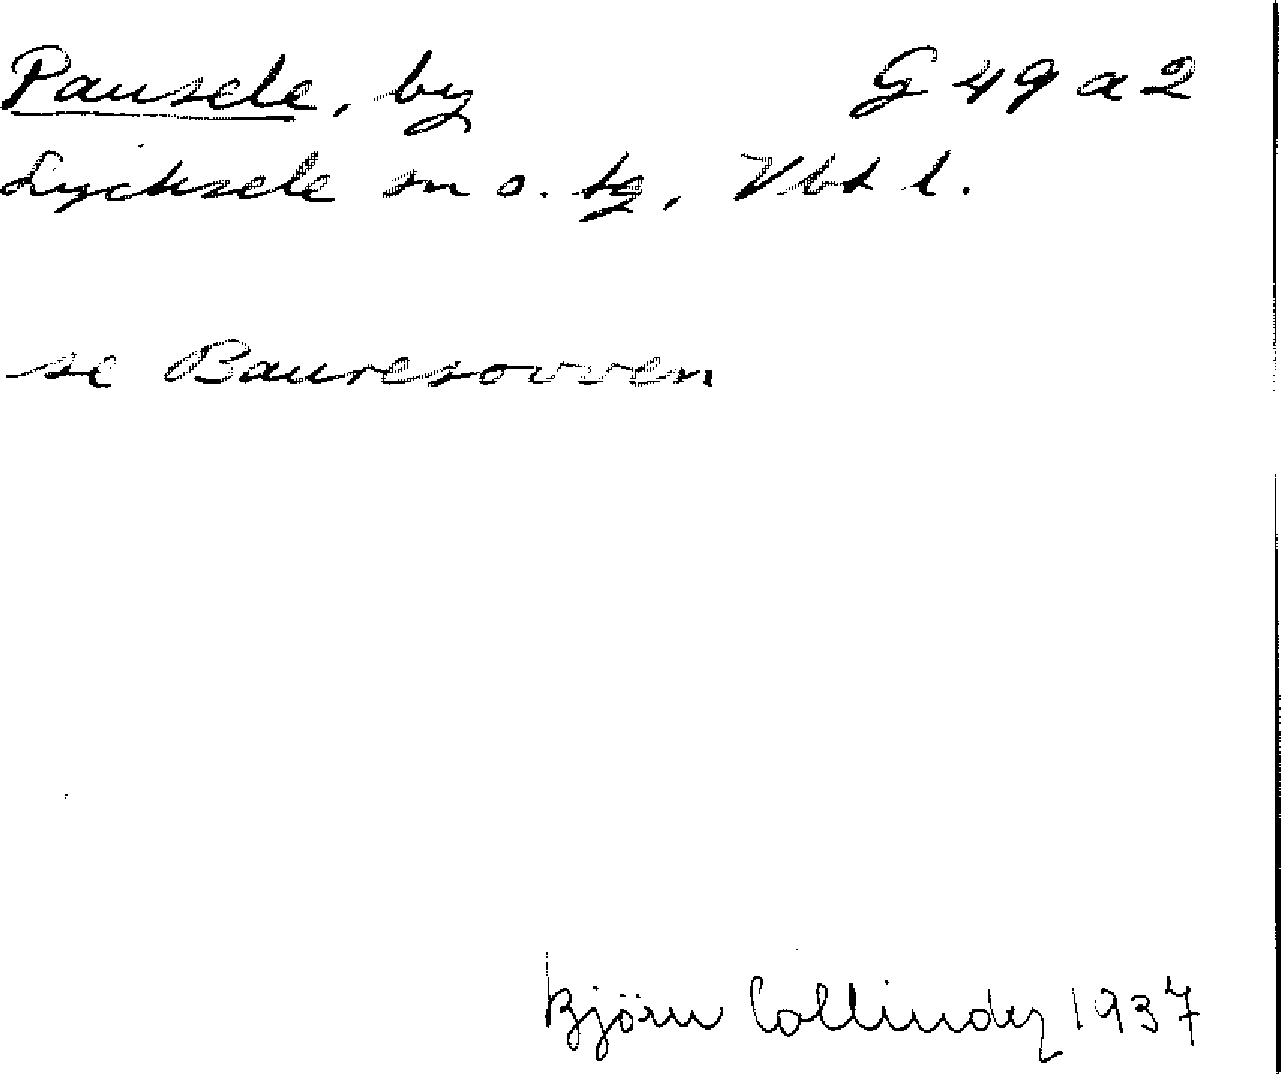 Pausele, by G 49 a 2
Lycksele sn o. tg, Vbt l.
se Bauresovven
Björn Collinder 1937